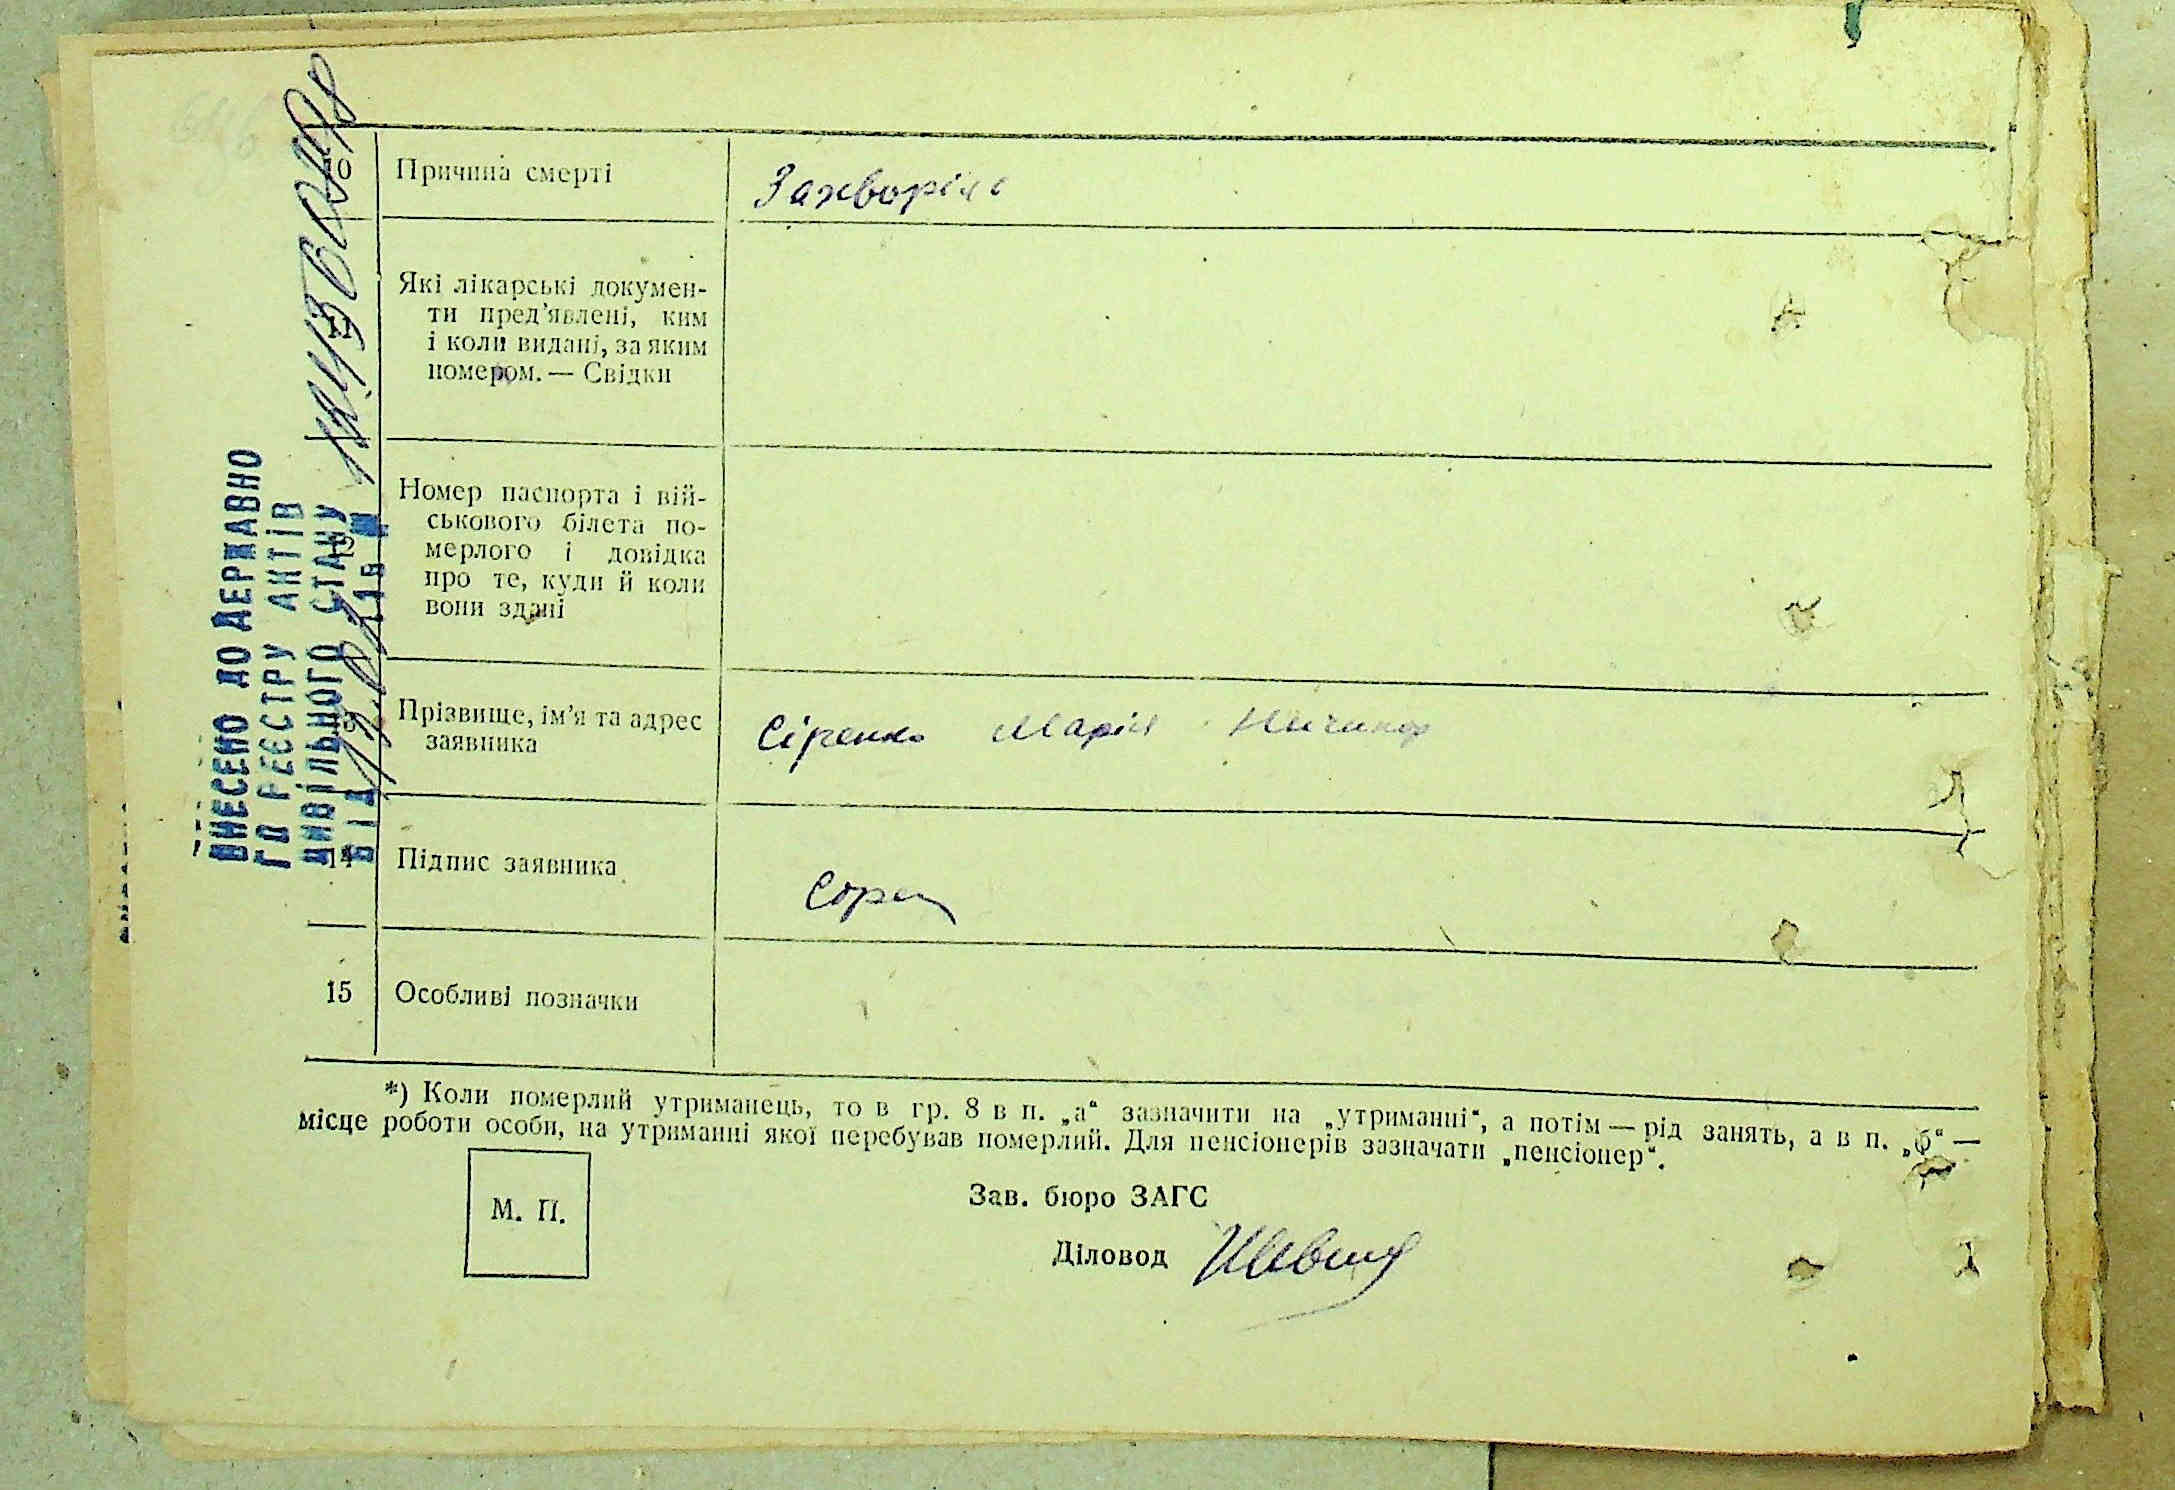 10 Причина смерті
Захворіла
11
Які лікарські докумен-
ти пред’явлені, ким
і коли видані, за яким
номером. — Свідки
12
Номер паспорта і вій-
ськового білета по-
мерлого і довідка
про те, куди й коли
вони здані
13
Прізвище, ім’я та адрес
заявника
Сіренко Марія
14 Підпис заявника
15 Особливі позначки
*) Коли померлий утриманець, то в гр. 8 в п. „а“ зазначити на „утриманні“, а потім — рід занять, а в п. „б“ —
місце роботи особи, на утриманні якої перебував померлий. Для пенсіонерів зазначати „пенсіонер“.
М. П.
Зав. бюро ЗАГС
Діловод
ВНЕСЕНО ДО ДЕРЖАВНО
ГО РЕЄСТРУ АКТІВ
ЦИВІЛЬНОГО СТАНУ
ВІД